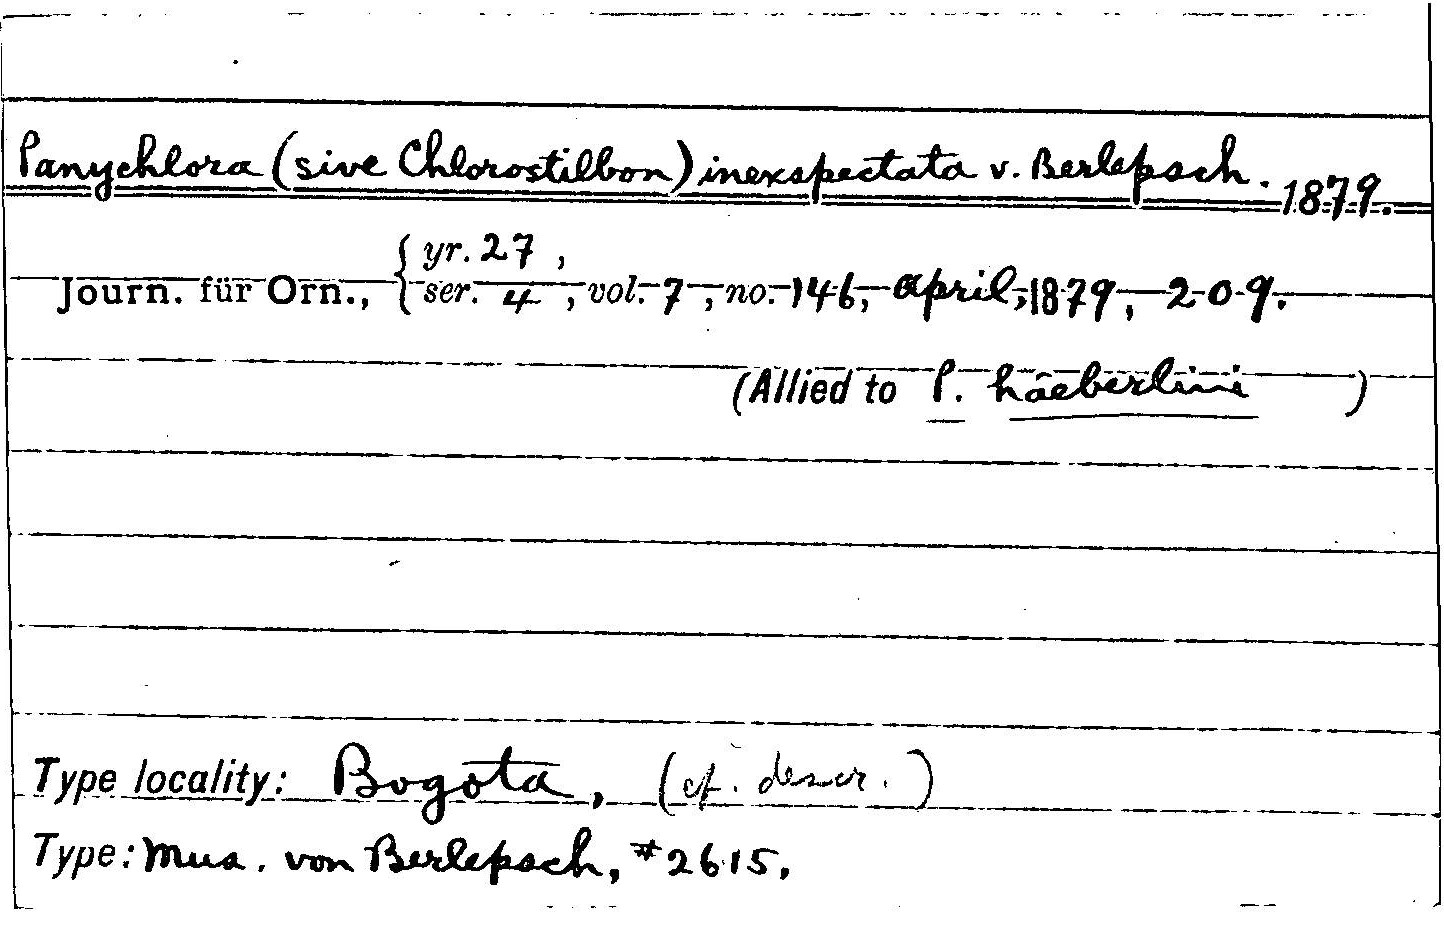 Panychlora (sive Chlorostilbon) inexspectata v. Berlepsch. 1879.
Journ. für Orn., { yr. 27 ,
ser. 4 , vol. 7 , no. 146, April, 1879, 209.
(Allied to P. häeberlini )
Type locality: Bogota, (cf. descr. )
Type: Mus. von Berlepsch, #2615.